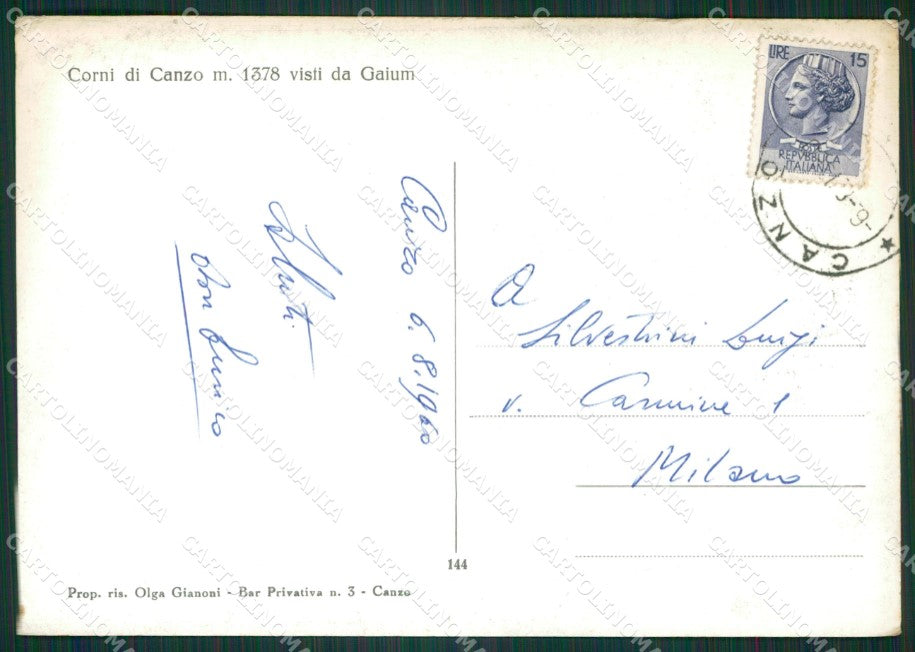 Corni di Canzo m. 1378 visti da Gaium
LIRE 15
POSTE
REPVBBLICA
ITALIANA
CANZO
Canzo 6.8.1960
Saluti
don
A
Silvestrini Luigi
v. Carmine 1
Milano
144
Prop. ris. Olga Gianoni - Bar Privativa n. 3 - Canzo
CARTOLINOMANIA